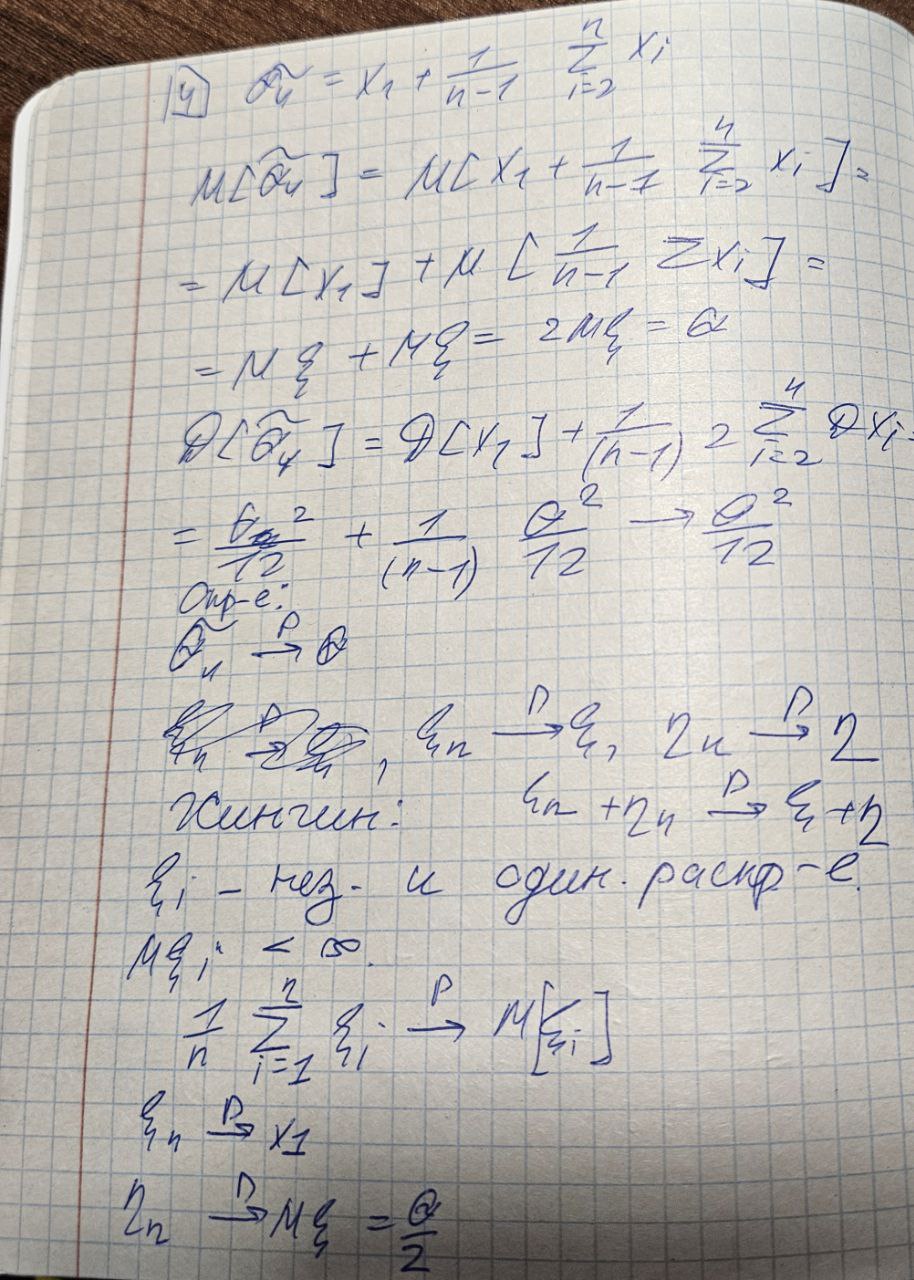 4) θ̃₄ = x₁ + 1/(n-1) Σ_{i=2}^{n} xᵢ
M[θ̃₄] = M[x₁ + 1/(n-1) Σ_{i=2}^{n} xᵢ] =
= M[x₁] + M[1/(n-1) Σxᵢ] =
= Mξ + Mξ = 2Mξ = θ
D[θ̃₄] = D[x₁] + 1/(n-1)² Σ_{i=2}^{n} Dxᵢ =
= θ²/12 + 1/(n-1) θ²/12 → θ²/12
Опр-е:
θ̃ₙ →^P θ
, ξₙ →^P ξ, ηₙ →^P η
Хинчин: ξₙ + ηₙ →^P ξ + η
ξᵢ – нез. и один. распр-е.
Mξᵢ < ∞.
1/n Σ_{i=1}^{n} ξᵢ →^P M[ξᵢ]
ξₙ →^P x₁
ηₙ →^P Mξ = θ/2